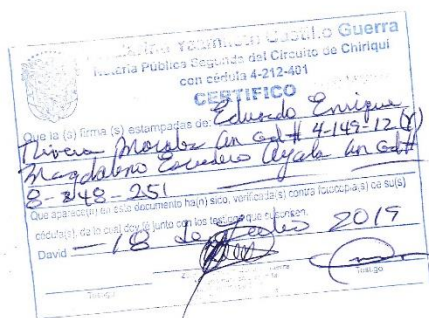 Guerra
Notaría Pública Segunda del Circuito de Chiriquí
con cédula 4-212-401
CERTIFICO
Que la (s) firma (s) estampadas de: Eduardo Enrique
Rivera Morales con ced # 4-149-12 (Y)
Magdaleno Escudero Ayala con ced#
8-248-251
Que aparece(n) en este documento ha(n) sido, verificada(s) contra fotocopia(s) de su(s)
cédula(s), de lo cual doy fe junto con los testigos que suscriben.
David 18 de 2019
Testigo Testigo